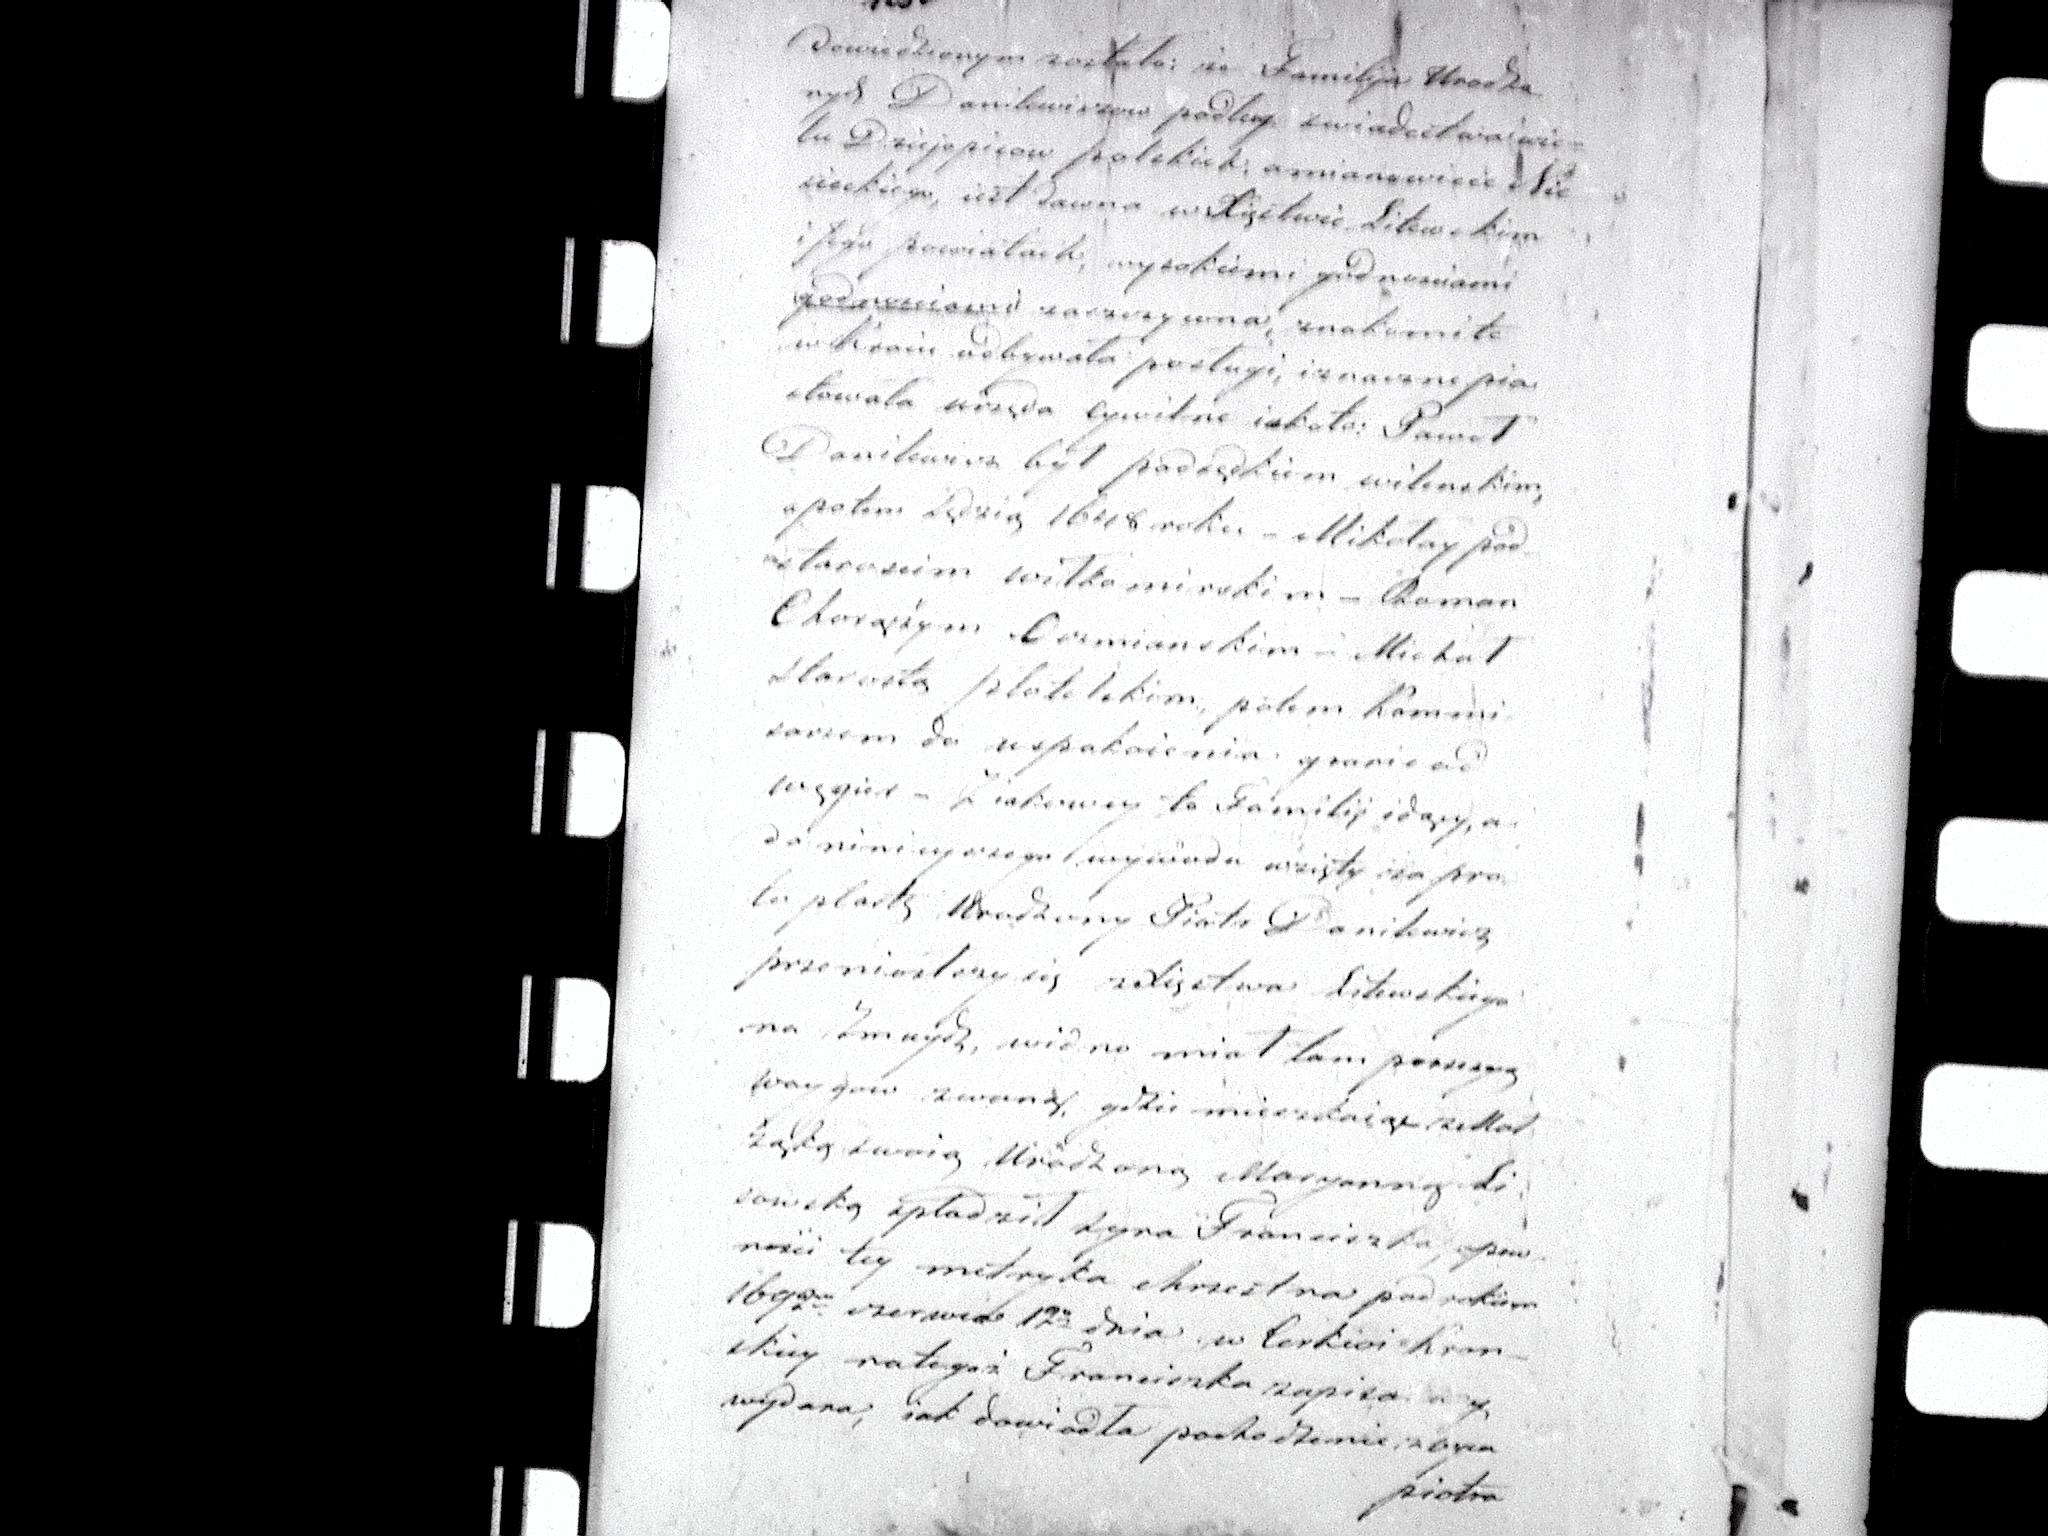 dowiedzionym zostało: że Familija Urodzo
nych Danilewiczow podług swiadectwa wie-
lu Dziejopisow polskich, a mianowicie Nie
sieckiego, iest dawna w Xięstwie Litewskim
i jego powiatach, wysokiemi godnosciami
godnosciami zaszczycona, znakomite
w Kraiu odbywała posługi, i znaczne pia
stowała urzęda cywilne iakoto: Paweł
Danilewicz był podsędkiem wilenskim,
a potem Sędzią roku - Mikołay pod
staroscim wiłkomirskim - Roman
Chorążym Oszmianskim - Michał
Starostą płotelskim, potem Kommi
sarzem do uspokoienia granic od
węgier - Z iakowey to Familij idący, a
do ninieyszego wywodu wzięty za pro
to plastę Urodzony Piotr Danilewicz
przeniosłszy się z Xięstwa Litewskiego
na Żmuydz, widno miał tam possesyą
zwaną, gdzie mieszkaiąc z Mał
żąką swoią Urodzoną Maryanną Li
sowską spłodził syna Franciszka, a pew-
ności tey metryka chrzestna pod rokiem
czerwca 12 dnia w Cerkwi Kron-
skiey na tegoż Franciszka zapisa
wydana, iak dowiodła pochodzenie
piotra